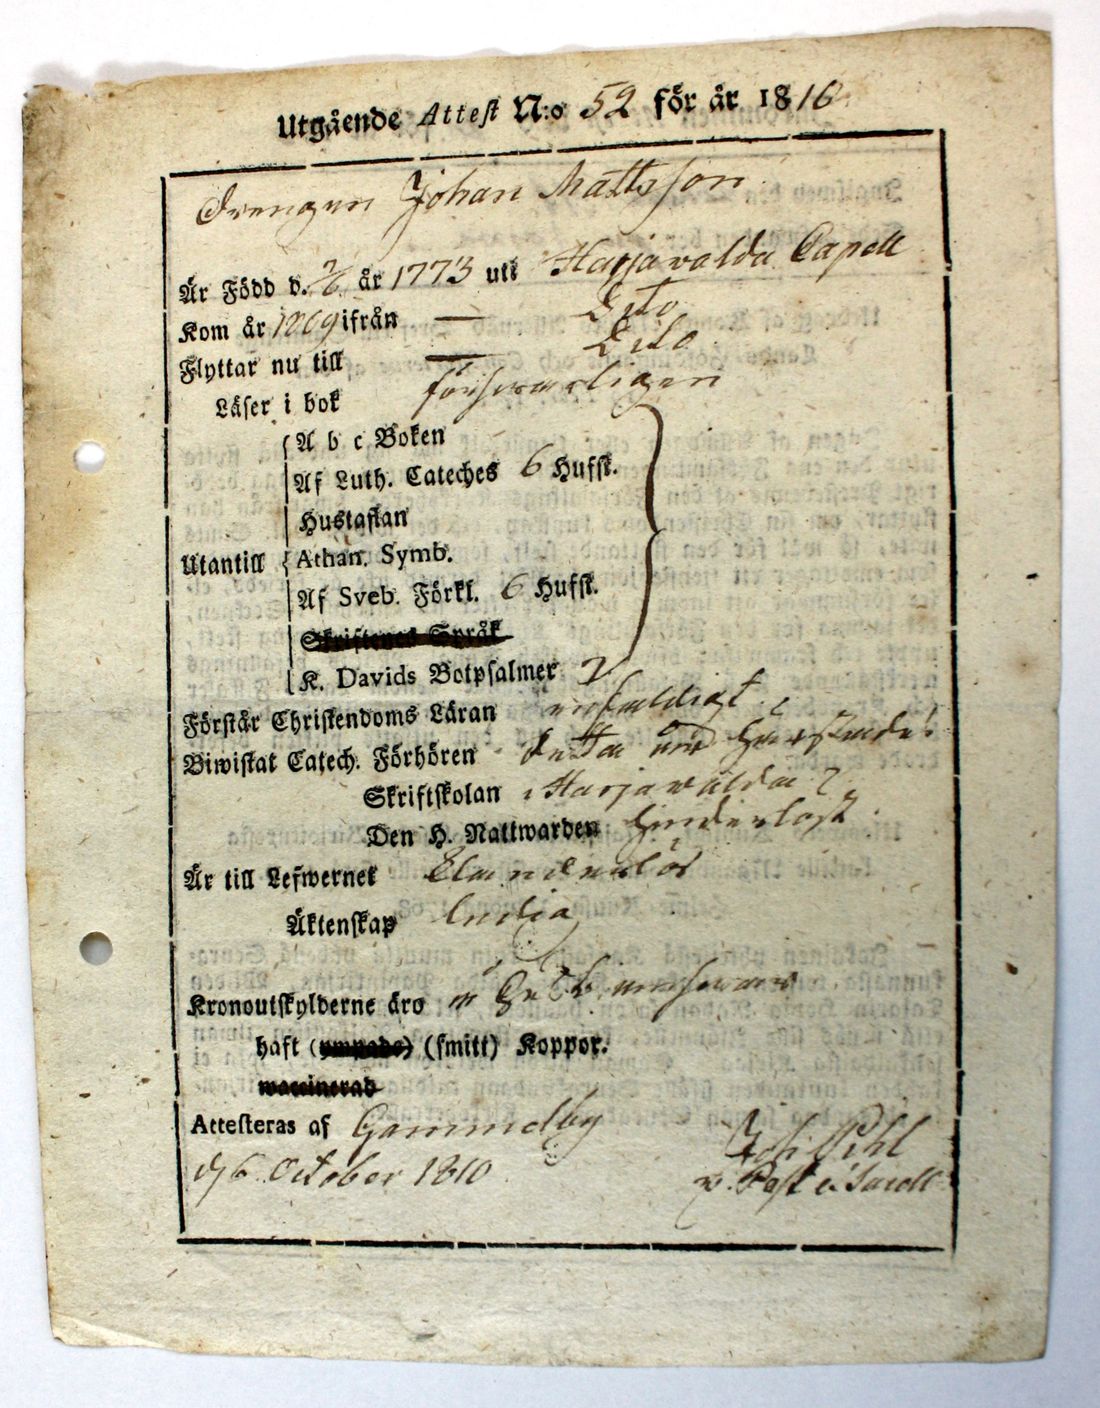 Utgående Attest N:o 52 för år 1810
Drengen Johan Mattsson
Är Född d. 2/6 år 1773 uti Harjavalda Capell
Kom år 1809 ifrån — Dito
Flyttar nu till — Dito
Läser i bok försvarligen
A b c Boken
Af Luth. Cateches 6 Hufst.
Hustaflan
Utantill Athan. Symb.
Af Sveb. Förkl. 6 Hufst.
Skriftenes Språk
K. Davids Botpsalmer 2
Förstår Christendoms Läran enfaldigt
Biwistat Catech. Förhören detta
Skriftskolan i Harjavalda
Den H. Nattwarden Hinderlöst
Är till Lefwernet Clanderlös
Äktenskap ledig
Kronoutskylderne äro
haft (ympade) (smitt) Koppor.
waccinerad
Attesteras af Gammelby
d. 6 October 1810
Joh: Pihl